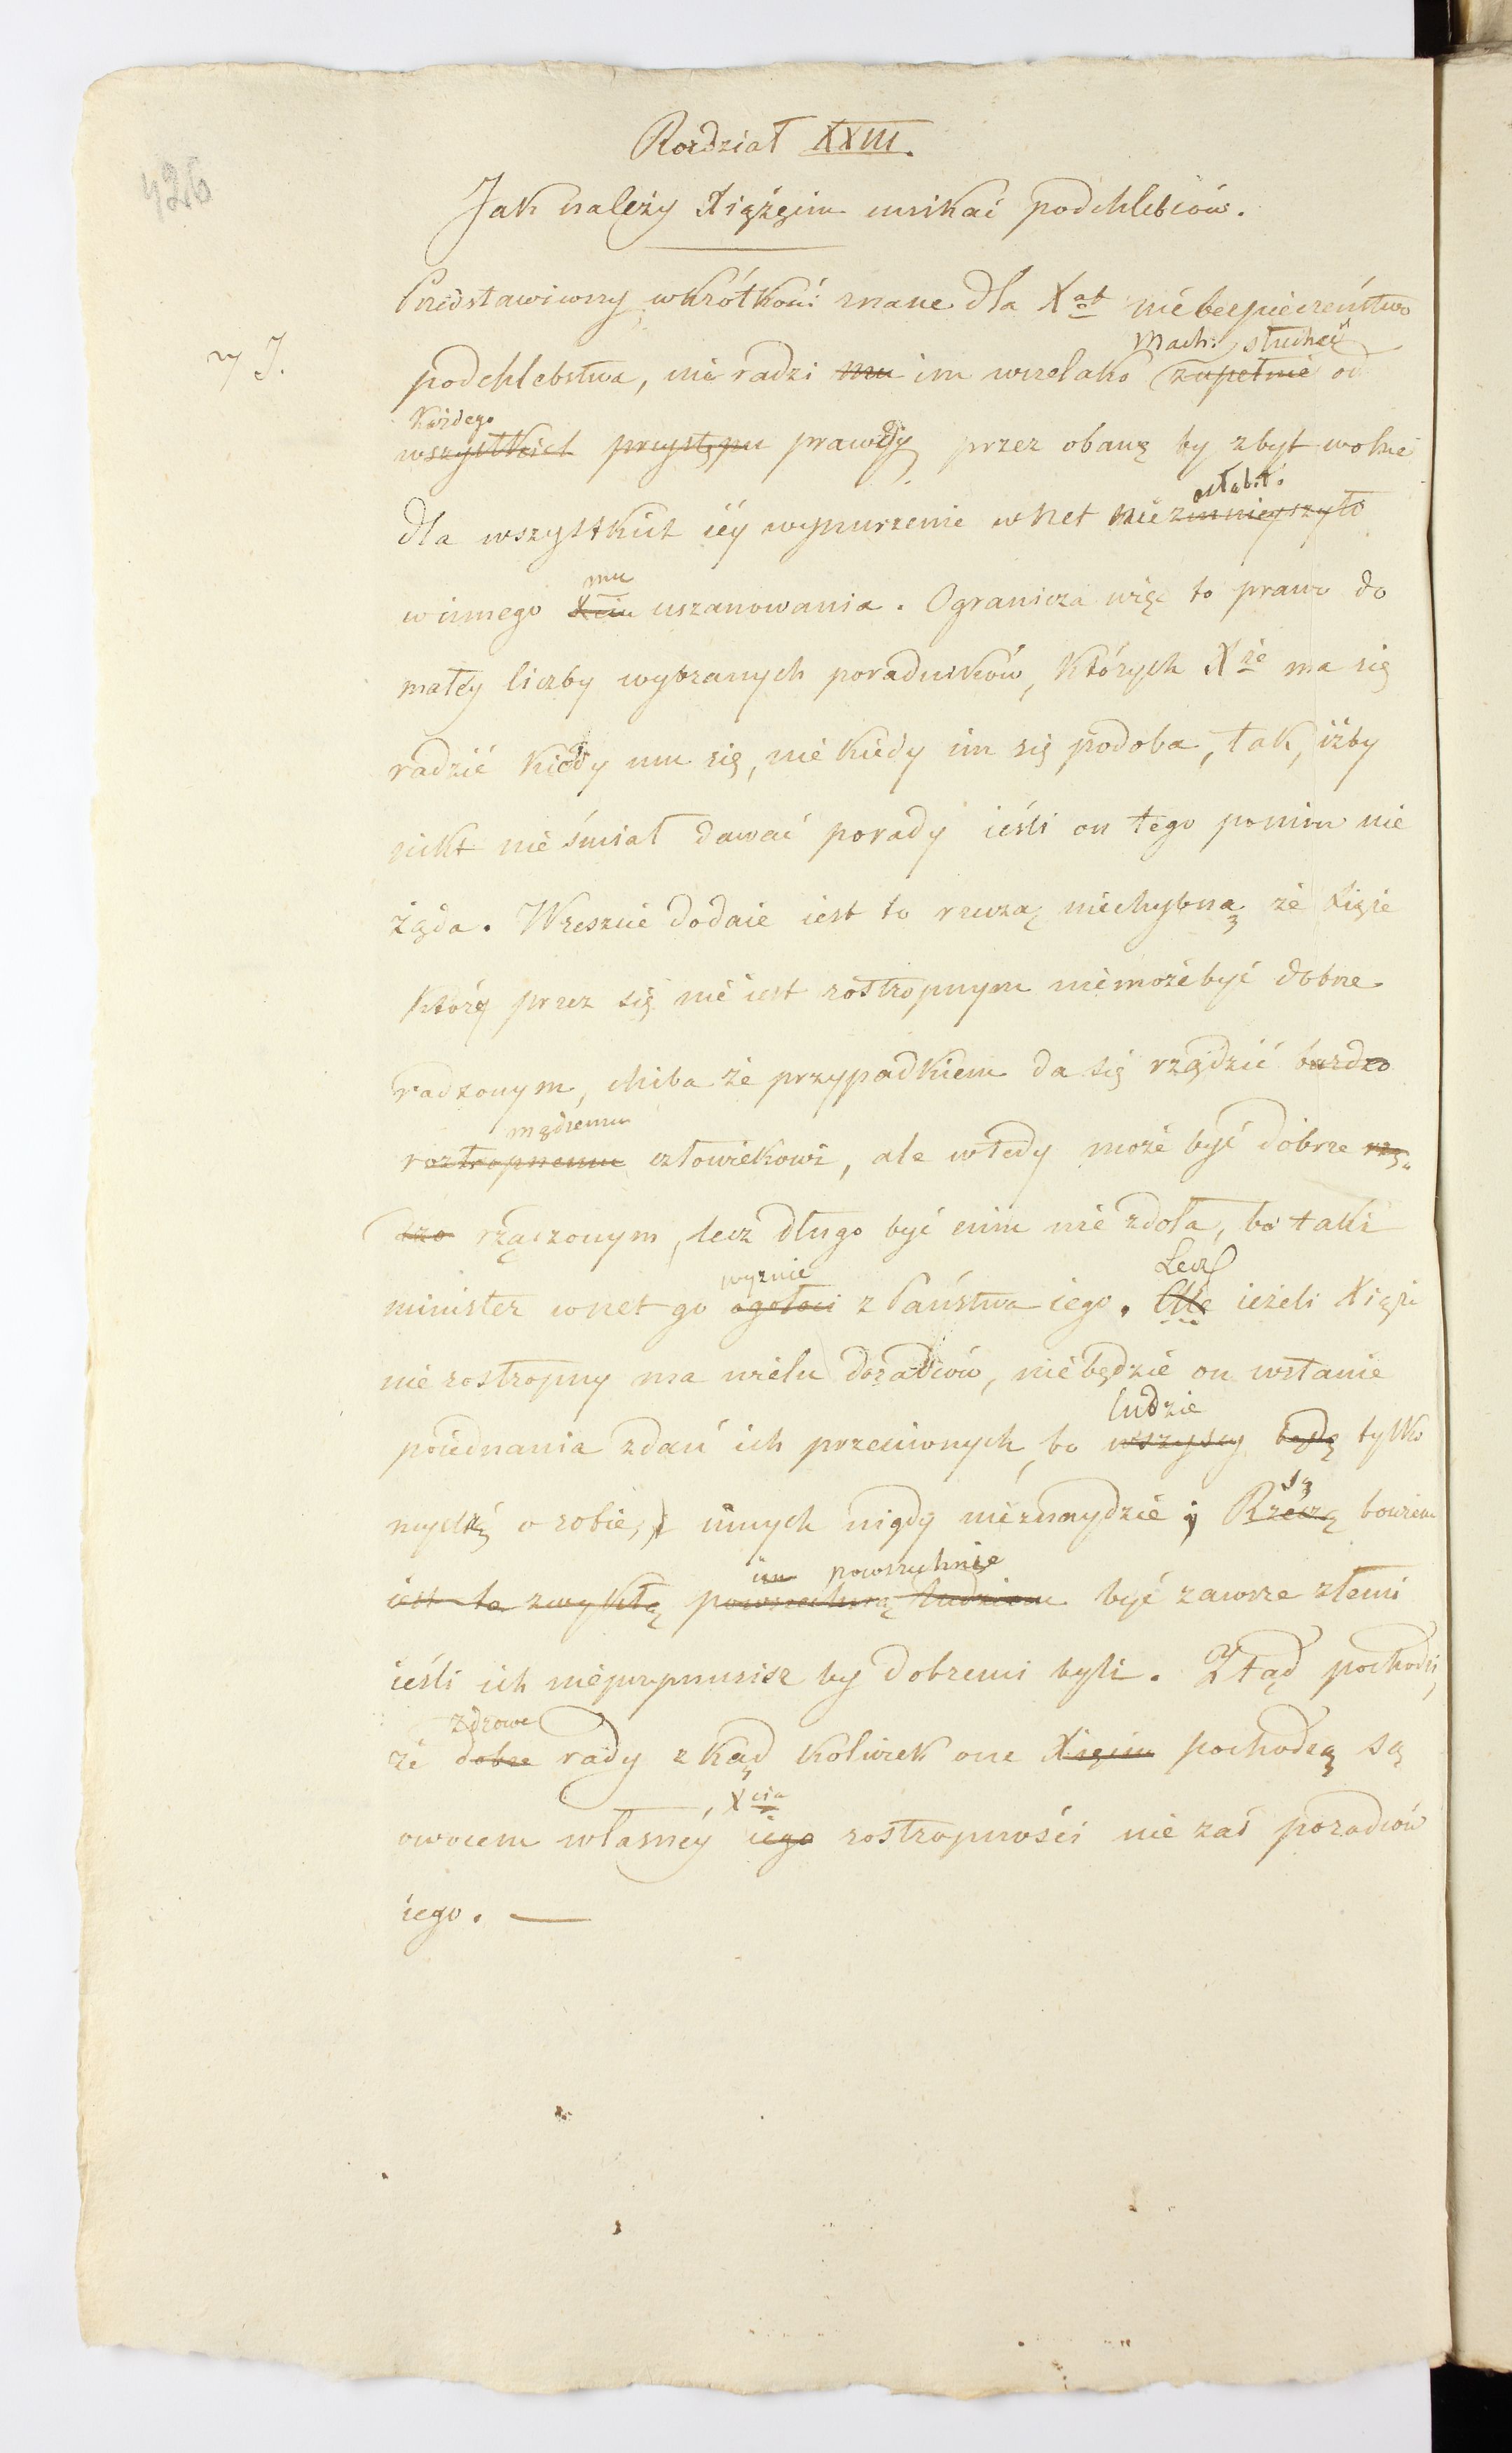 426
Rozdział XXIII.
Jak należy Xiążęciu unikać podchlebców.
Przedstawiwszy w krótkości znane dla Xąt niebespieczeństwo
Mach: słuchać
podchlebstwa, nie radzi mu im wszelako zupełnie od
Każdego
wszystkich przystępu prawdy przez obawę by zbyt wolne
osłabił.
dla wszystkich iéy wynurzenie wnet niezmnieyszyło
mu
winnego Xciu uszanowania. Ogranicza więc to prawo do
małéy liczby wybranych poradników, których Xże ma się
radzić kiedy mu się, nie kiedy im się podoba, tak, iżby
nikt nie śmiał dawać porady ieśli on tego po nim nie
żąda. Wreszcie dodaie iest to rzeczą niechybną że Xiąże
który przez się nie iest rostropnym nie może być dobrze
radzonym, chiba że przypadkiem da się rządzić bardzo
mądremu
roztropnemu człowiekowi, ale wtedy może być dobrze rzą-
dzo rządzonym, lecz długo być nim nie zdoła, bo taki
wyznie
minister wnet go ogołoci z Państwa iego. Ale ieżeli Xiąże
Lecz
nie rostropny ma wielu doradców, nie będzie on wstanie
poiednania zdań ich przeciwnych, bo wszyscy będą tylko
ludzie
myślą o sobie, i innych nigdy nieznaydzie; Rzeczą bowiem
są
im powszechnie
iest to zwykłą powszechną ludziom być zawsze złemi
ieśli ich nieprzymusisz by dobremi byli. Ztąd pochodzi,
zdrowe
że dobre rady z kąd kolwiek one Xięciu pochodzą są
Xcia
owocem własnéy iego rostropności nie zaś poradców
iego. —